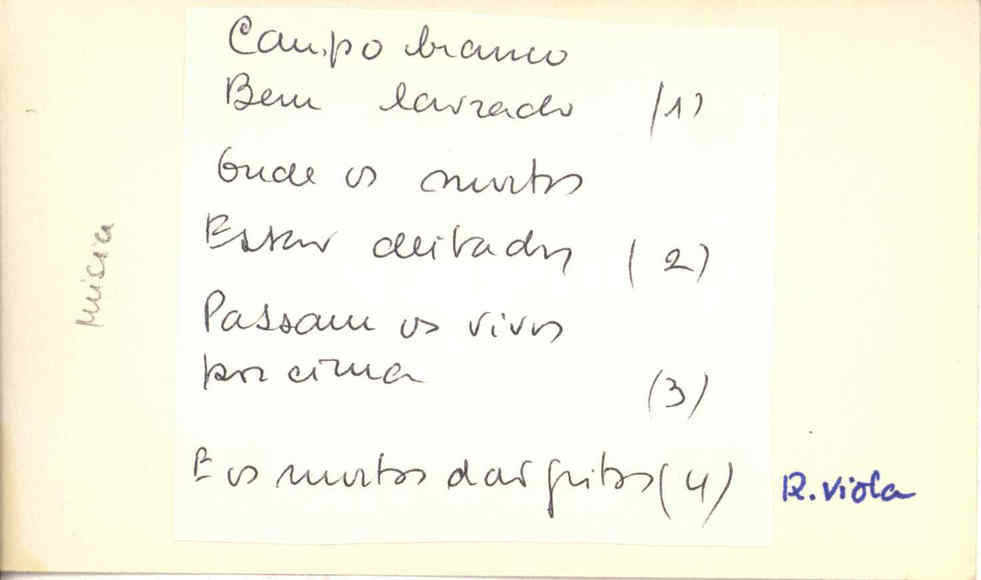 Campo branco
Bem lavrado (1)
Onde os mortos
Estão deitados (2)
Passam os vivos
por cima (3)
E os mortos dão gritos (4)
R. viola
Música